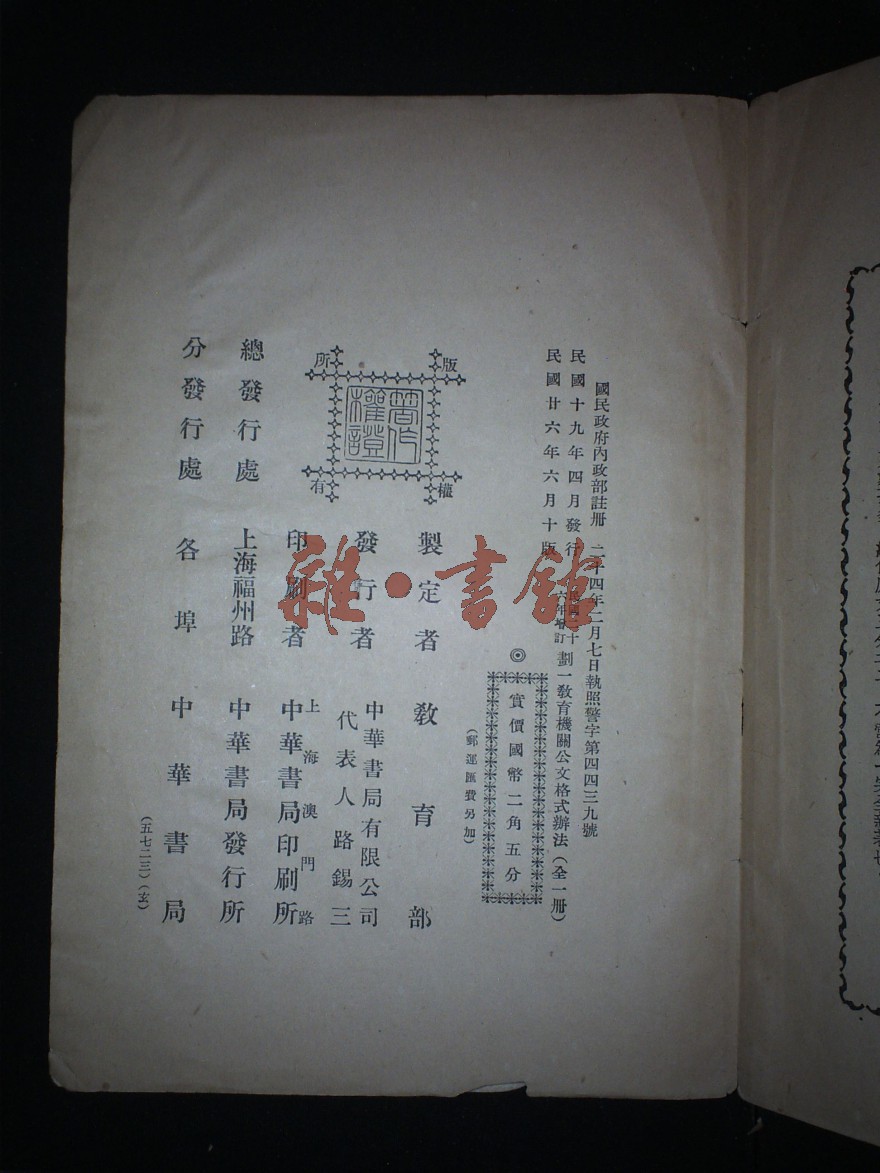 國民政府內政部註册 二十四年二月七日執照警字第四四三九號
民國十九年四月發行
民國廿六年六月十版
六年增訂 劃一教育機關公文格式辦法（全一册）
◎實價國幣二角五分
（郵運匯費另加）
版權所有
著作權證
製定者 教育部
發行者 中華書局有限公司
代表人 路錫三
印刷者 上海澳門路
中華書局印刷所
總發行處 上海福州路 中華書局發行所
分發行處 各埠 中華書局
（五七二三）（玄）
雜·書館